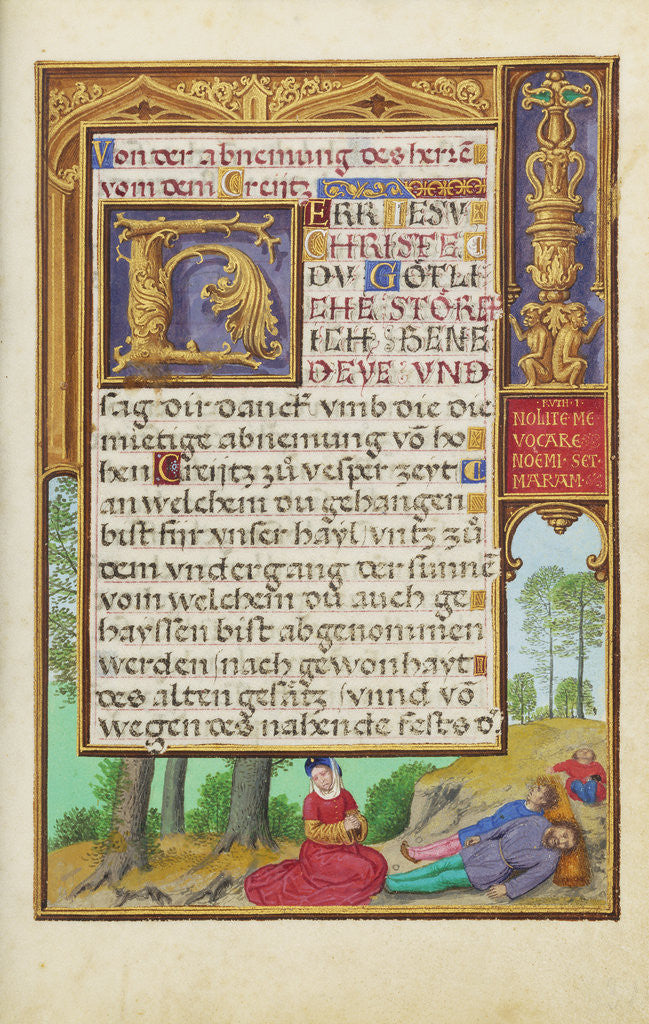 Von der abnemung des herrē
vom dem Creijtz
HERR IESV
CHRISTE
DV GÖTLI
CHE STÖREH
ICH BENE
DEYE VND
sag dir danck vmb die die
mietige abnemung vō ho
hen Creijtz zů vesper zeyt
an welchem du gehangen
bist fijr vnser hayl/ vntz zů
dem vndergang der sunnē
vom welchem du auch ge
hayssen bist abgenommen
werden/ nach gewonhayt
des alten gesåtz/ vnnd vō
wegen des nahende fests dͦ
RVTH·I·
NOLITE·ME·
VOCARE
NOEMI·SET·
MARAM·